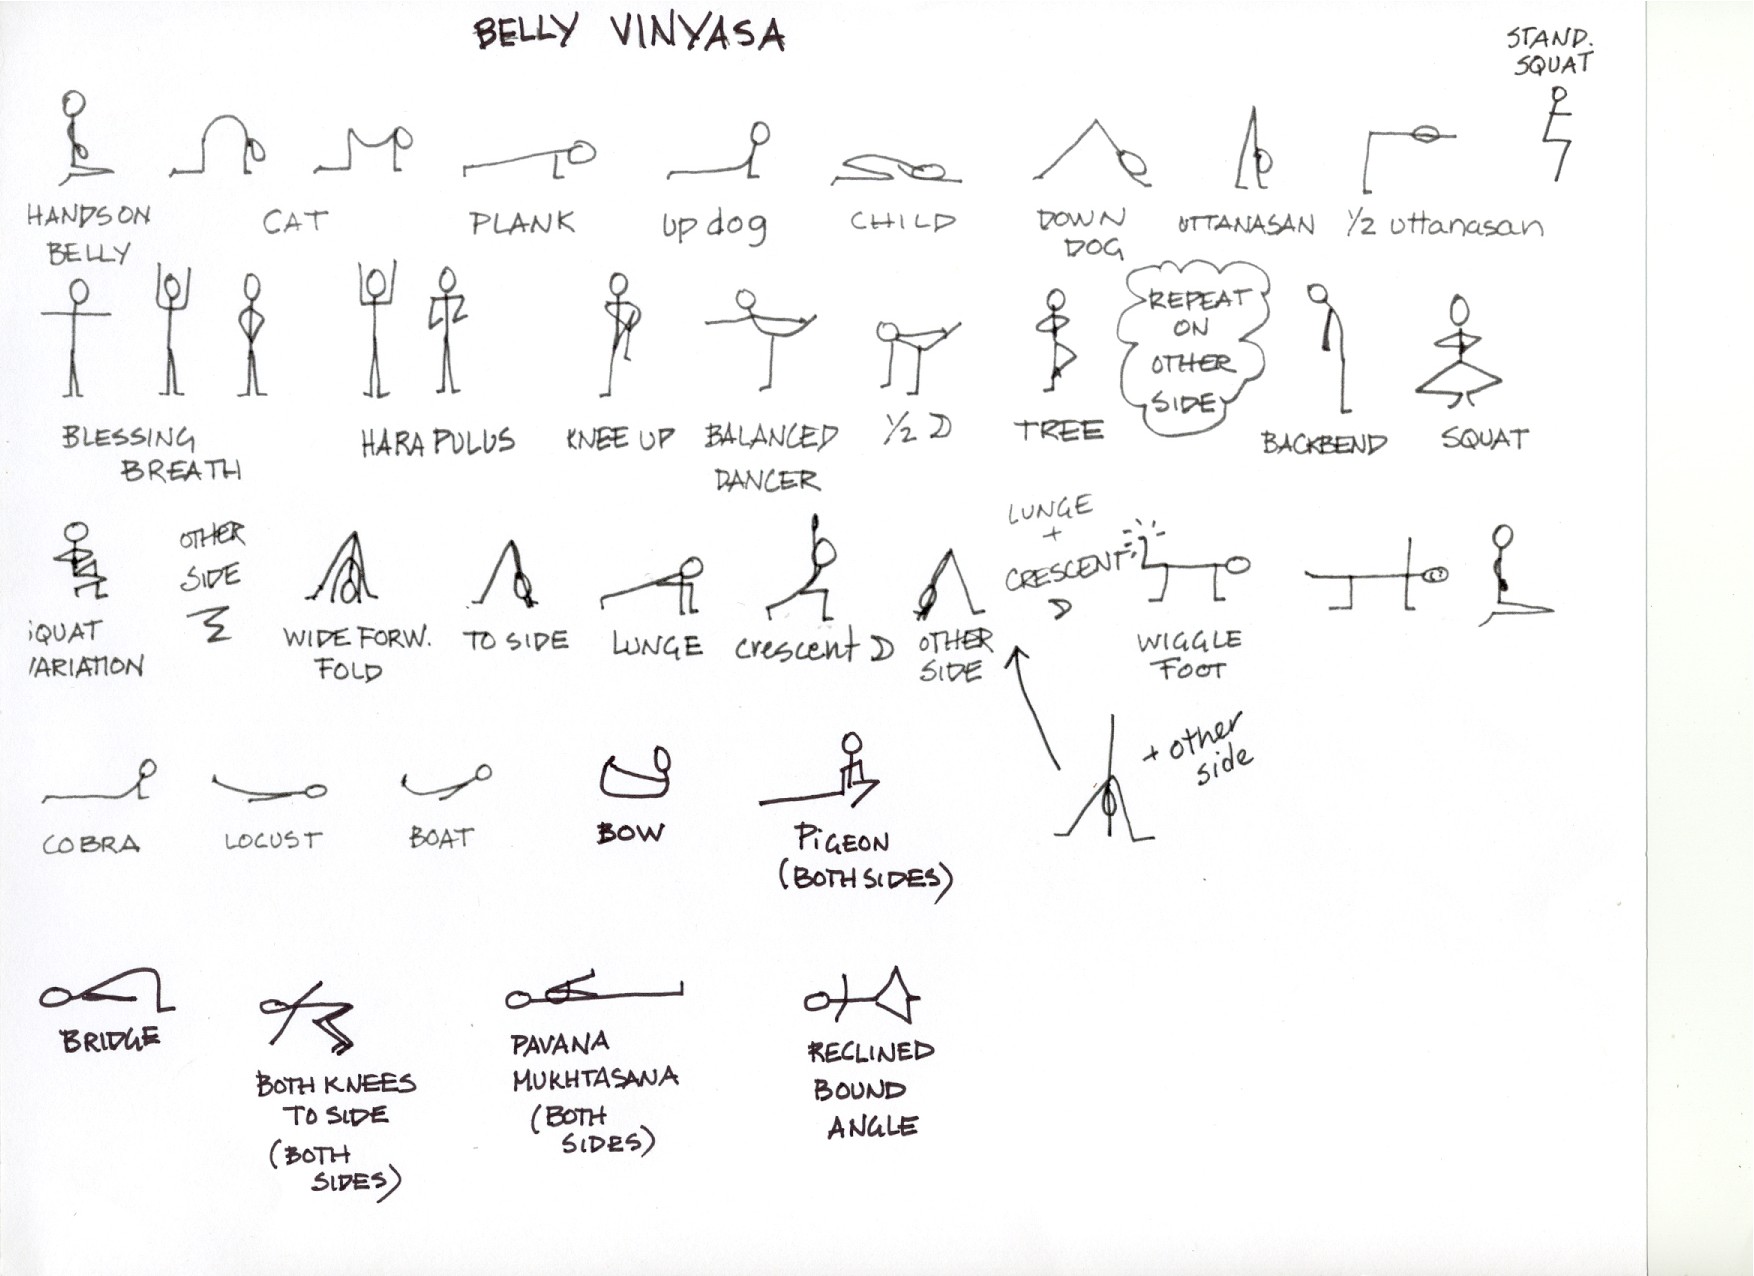 BELLY VINYASA
STAND.
SQUAT
HANDS ON
BELLY
CAT
PLANK
up dog
CHILD
DOWN
DOG
UTTANASAN
1/2 uttanasan
BLESSING
BREATH
HARA PULUS
KNEE UP
BALANCED
DANCER
1/2 D
TREE
REPEAT
ON
OTHER
SIDE
BACKBEND
SQUAT
SQUAT
VARIATION
OTHER
SIDE
WIDE FORW.
FOLD
TO SIDE
LUNGE
crescent D
OTHER
SIDE
LUNGE
+
CRESCENT
D
WIGGLE
FOOT
+ other
side
COBRA
LOCUST
BOAT
BOW
PIGEON
(BOTH SIDES)
BRIDGE
BOTH KNEES
TO SIDE
(BOTH
SIDES)
PAVANA
MUKHTASANA
(BOTH
SIDES)
RECLINED
BOUND
ANGLE